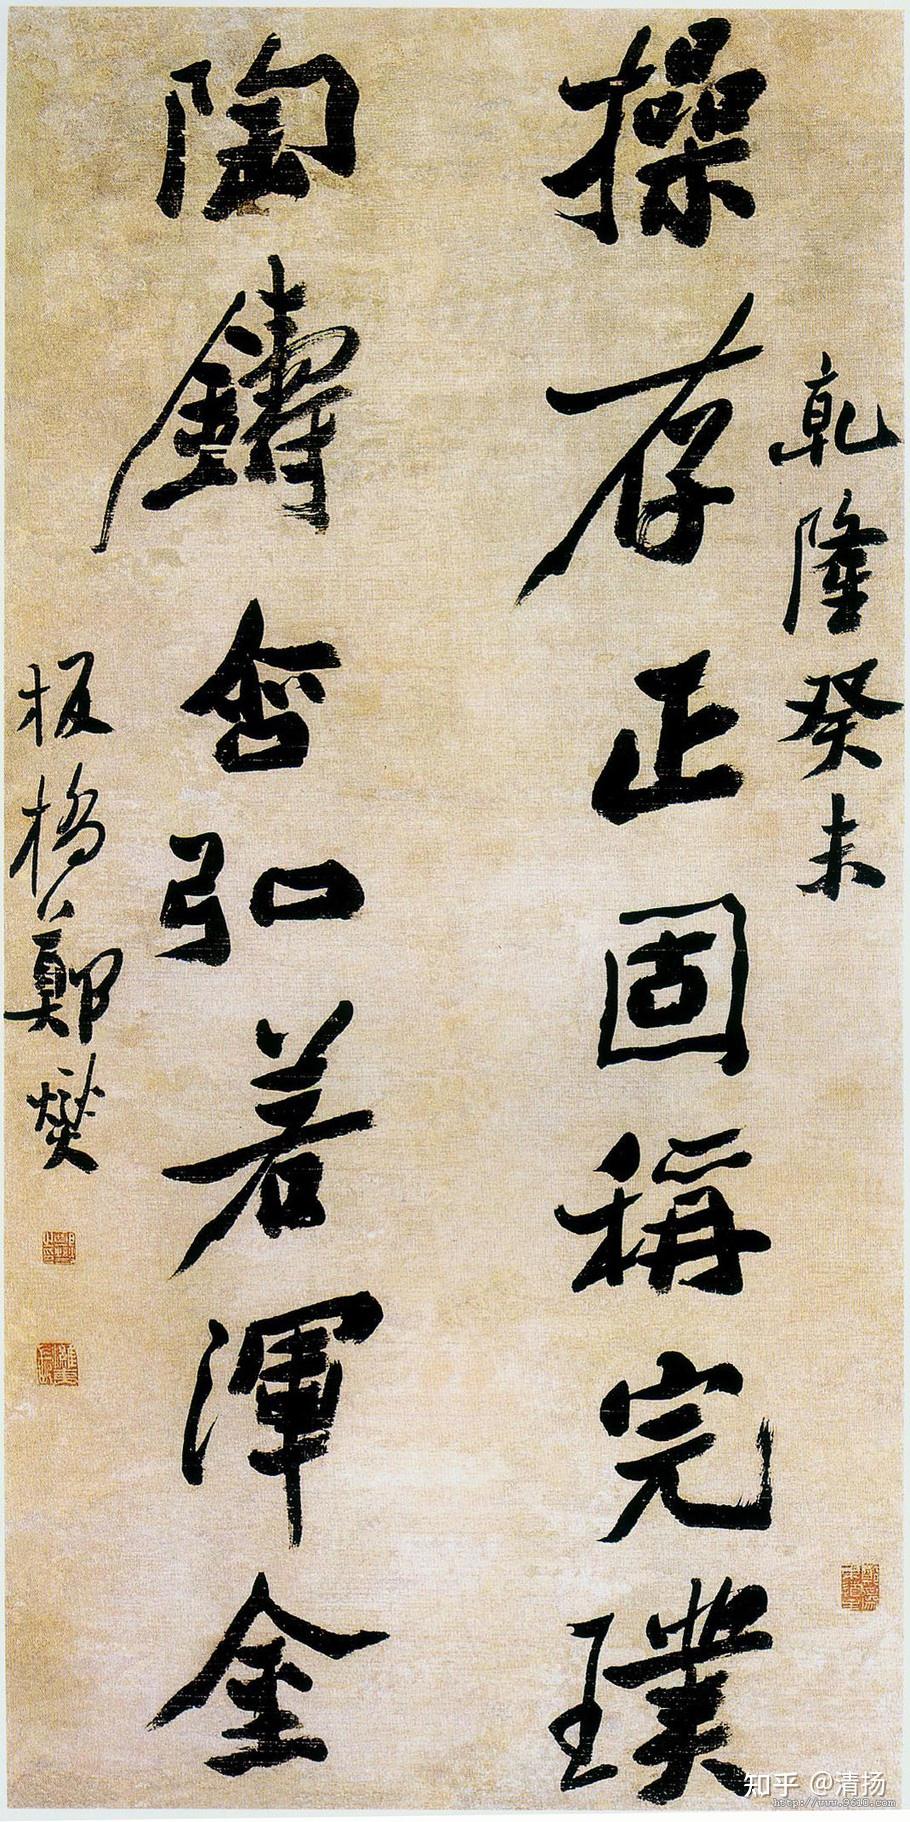 乾隆癸未
操存正固稱完璞
陶鑄含弘若渾金
板橋鄭燮
知乎 @清扬
http://www.9610.com